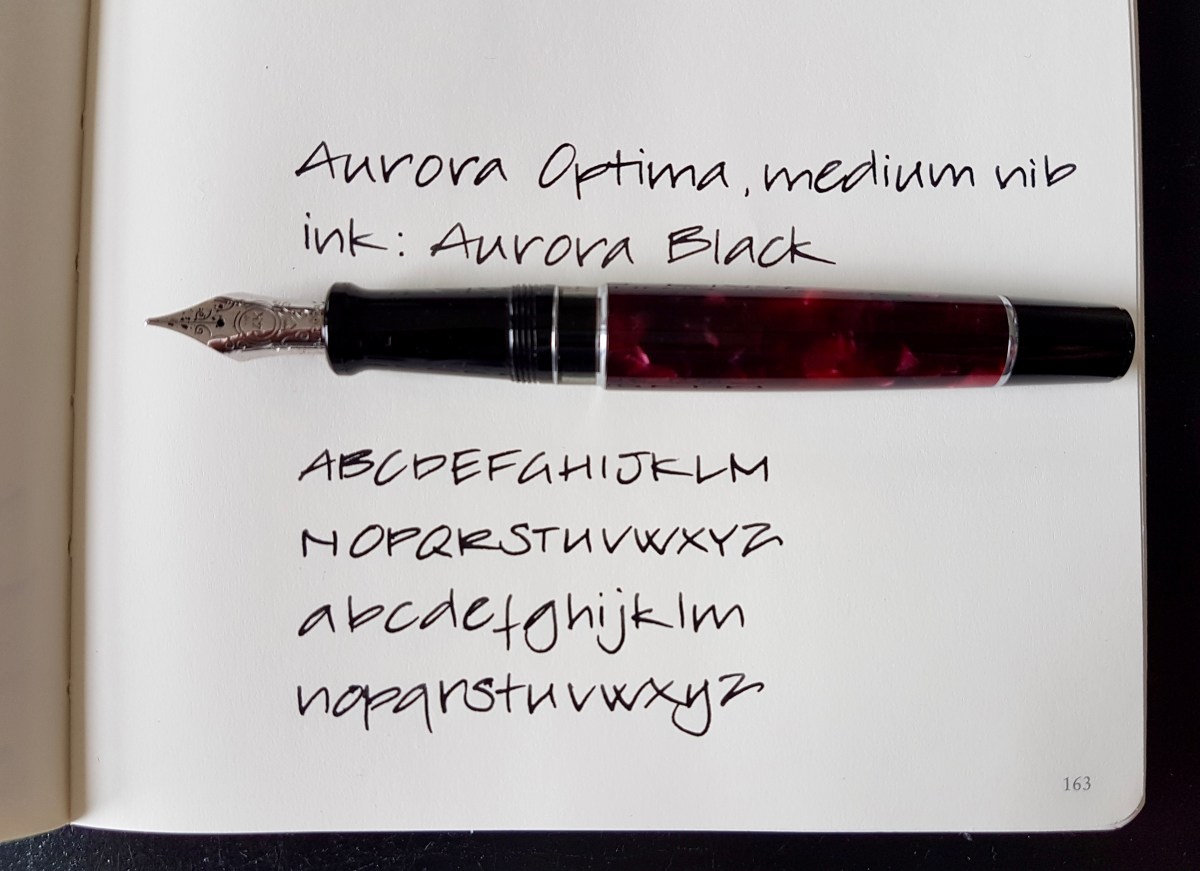 Aurora Optima, medium nib
ink: Aurora Black
14K
ABCDEFGHIJKLM
NOPQRSTUVWXYZ
abcdefghijklm
nopqrstuvwxyz
163